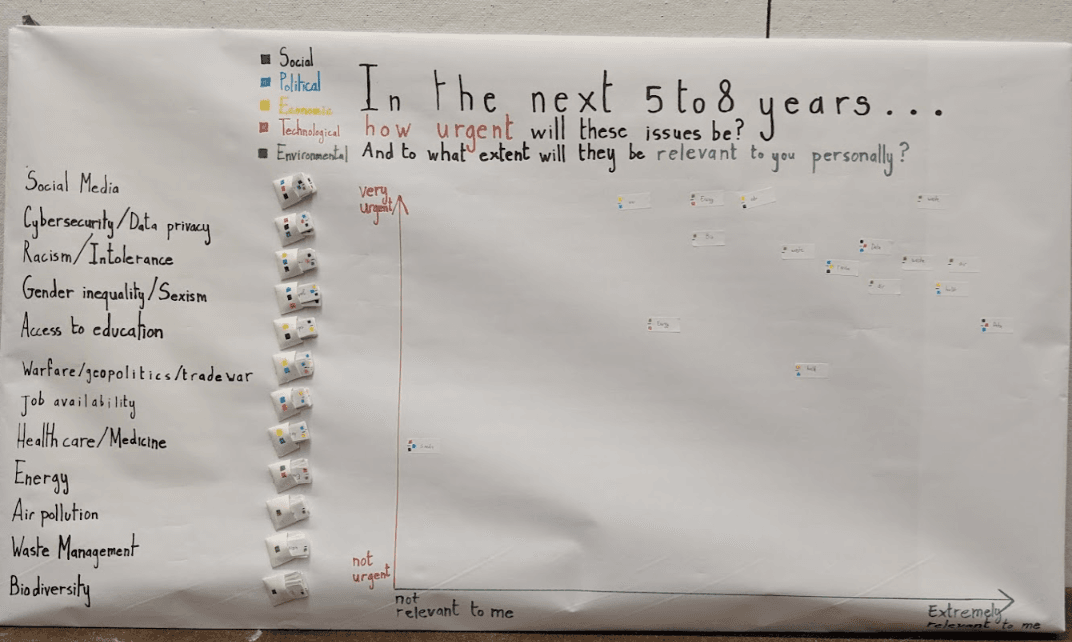 Social
Political
Economic
Technological
Environmental
In the next 5 to 8 years...
how urgent will these issues be?
And to what extent will they be relevant to you personally?
Social Media
Cybersecurity/Data privacy
Racism/Intolerance
Gender inequality/Sexism
Access to education
Warfare/geopolitics/tradewar
Job availability
Health care/Medicine
Energy
Air pollution
Waste Management
Biodiversity
very
urgent
not
urgent
not
relevant to me
Extremely
relevant to me